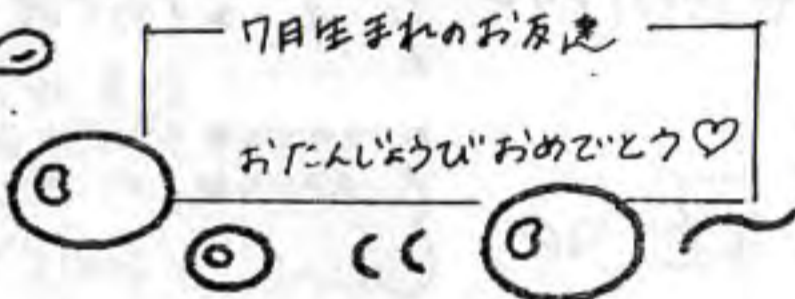 7月生まれのお友達
おたんじょうびおめでとう♡